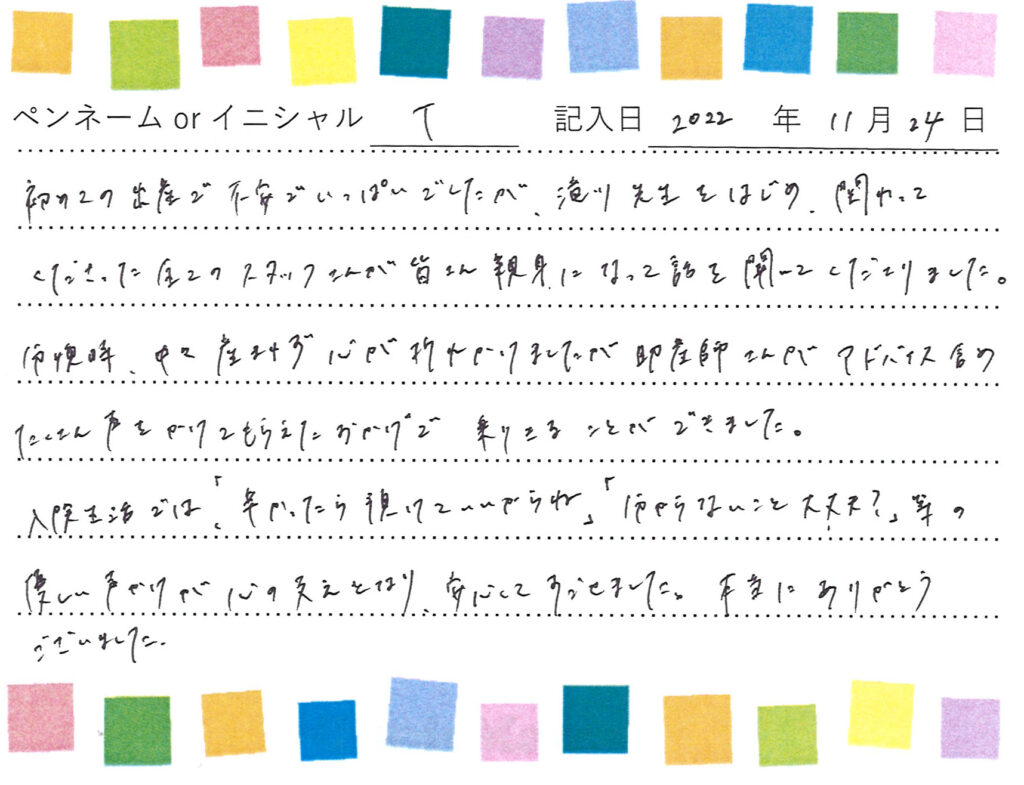 ペンネーム or イニシャル T 記入日 2022 年 11 月 24 日
初めての出産で不安でいっぱいでしたが、滝川先生をはじめ、関わって
くださった全てのスタッフさんが皆さん親身になって話を聞いてくださりました。
分娩時、中々産まれず心が折れかけましたが助産師さんがアドバイス含め
たくさん声をかけてもらえたおかげで乗りきることができました。
入院生活では、「辛かったら預けていいからね」「分からないこと大丈夫?」等の
優しい声かけが心の支えとなり、安心してすごせました。本当にありがとう
ございました。